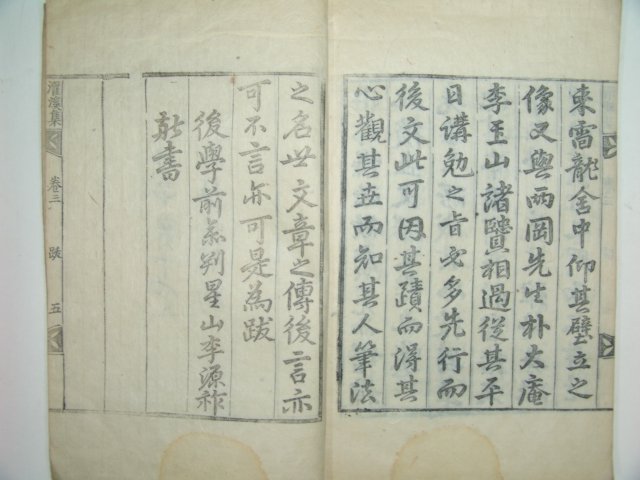 東雷龍舍中仰其壁立之
像又與兩岡先生朴大庵
李玉山諸賢相過從其平
日講勉之旨必多先行而
後文此可因其蹟而得其
心觀其世而知其人筆法
之名世文章之傳後言亦
可不言亦可是為跋
後學前參判星山李源祚
敬書
溪集
卷三
跋
五